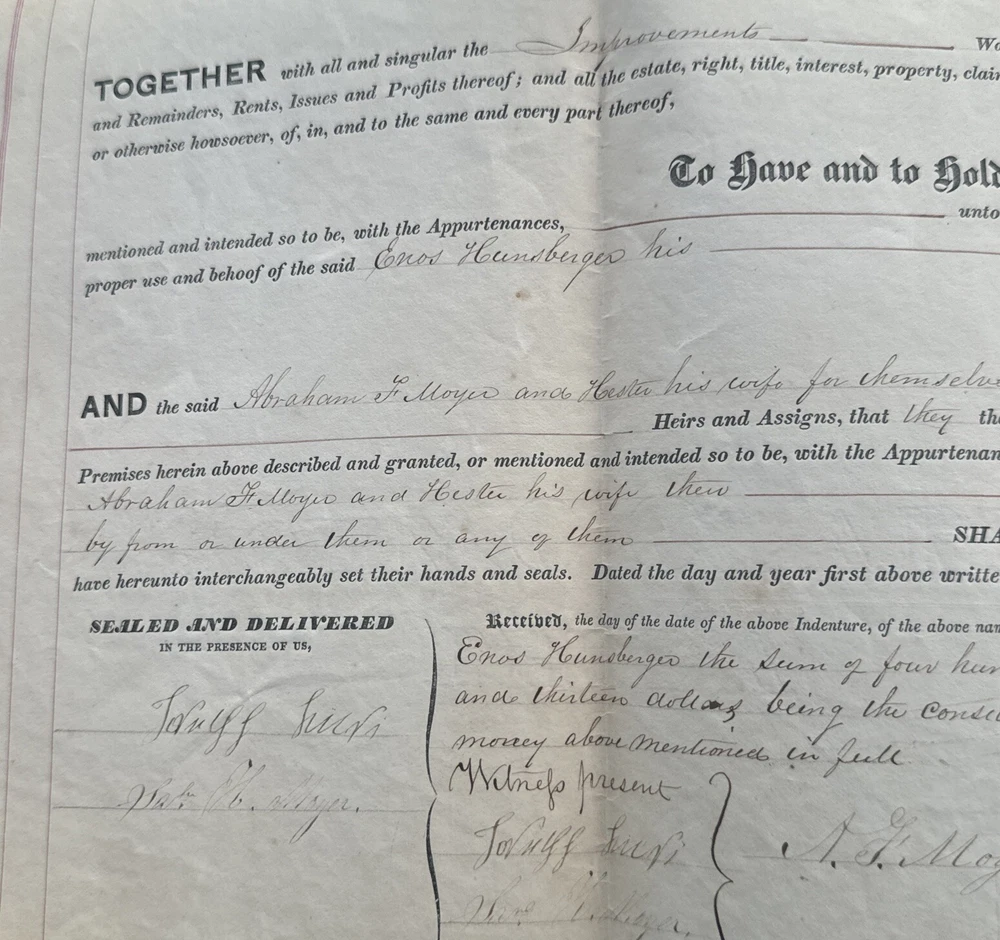 TOGETHER with all and singular the Improvements
and Remainders, Rents, Issues and Profits thereof; and all the estate, right, title, interest, property, claim
or otherwise howsoever, of, in, and to the same and every part thereof,
To Have and to Hold
mentioned and intended so to be, with the Appurtenances, unto
proper use and behoof of the said Enos Hunsberger his
AND the said Abraham F Moyer and Hester his wife for themselve
Heirs and Assigns, that they th
Premises herein above described and granted, or mentioned and intended so to be, with the Appurtenan
Abraham F Moyer and Hester his wife their
by from or under them or any of them SHA
have hereunto interchangeably set their hands and seals. Dated the day and year first above writte
SEALED AND DELIVERED
IN THE PRESENCE OF US,
Received, the day of the date of the above Indenture, of the above nam
Enos Hunsberger the sum of four hun
and thirteen dollars being the consi
money above mentioned in full
Witness present
Moyer.
A. F. Moy